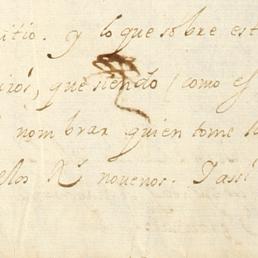 sitio. y lo que sobre est
que siendo / como es
nombrar quien tome
los Rs novenos. Y assi